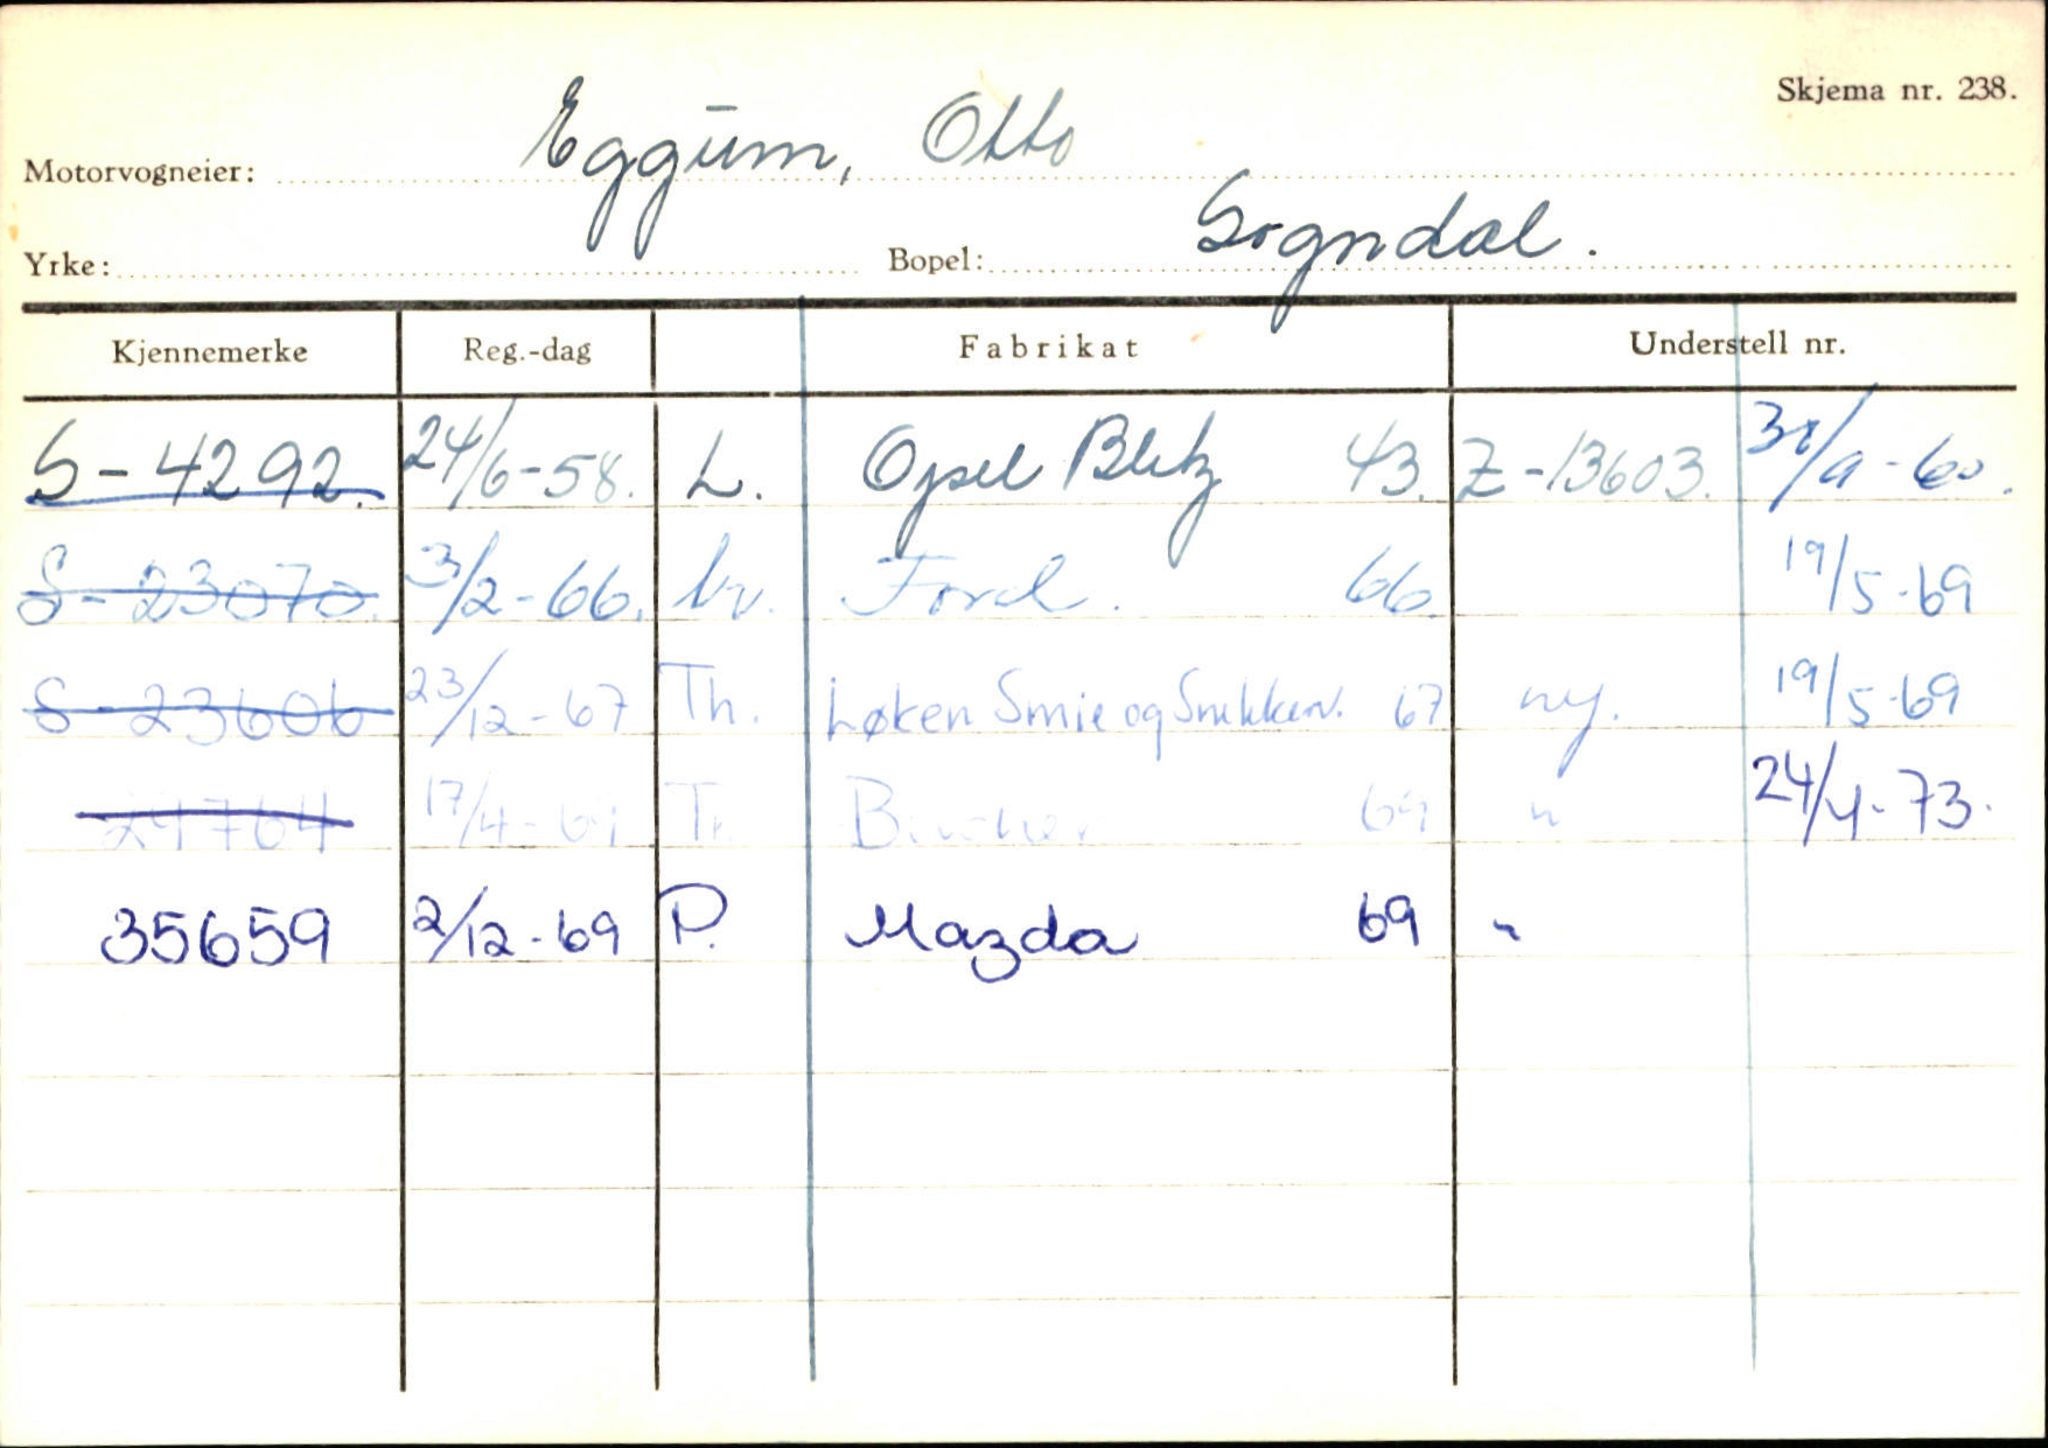 Skjema nr. 238.
Motorvogneier: Eggum, Otto
Yrke: Bopel: Sogndal.
Kjennemerke Reg.-dag Fabrikat Understell nr.
S-4292. 24/6-58. L. Opel Blitz 43. Z-13603. 30/9-60.
S-23070. 3/2-66. Ford. 66. 19/5-69
S-23606 23/12-67 Th. Løken Smie og Snekkerv. 67 ny. 19/5-69
17/4-69 69 " 24/4-73.
35659 2/12-69 P. Mazda 69 "